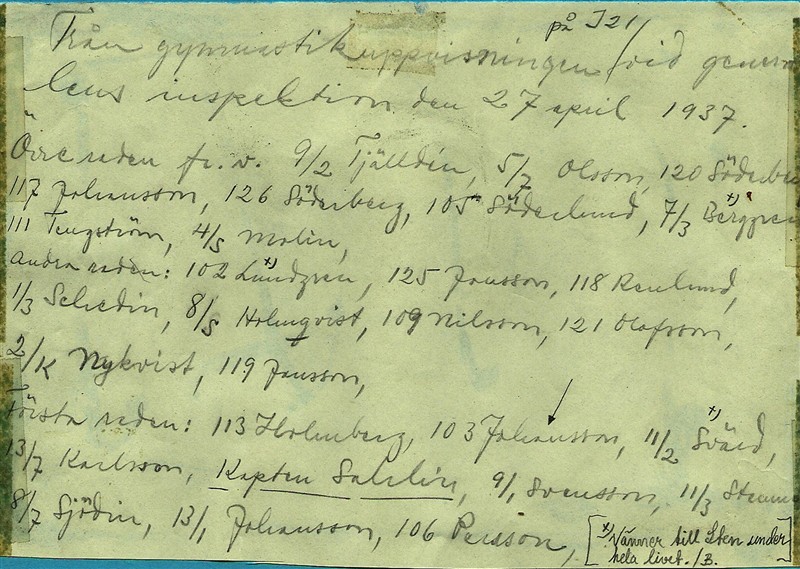 på I 21
Från gymnastikuppvisningen vid genera
lens inspektion den 27 april 1937.
Övre raden fr. v. 9/2 Tjälldin, 5/7 Olsson, 120 Söderbe
117 Johansson, 126 Söderberg, 105 Söderlund, 7/3 Berggre x)
111 Tengström, 4/5 Molin,
andra raden: 102 Lundgren x), 125 Jonsson, 118 Renlund,
1/3 Schedin, 8/5 Holmqvist, 109 Nilsson, 121 Olofsson,
2/K Nykvist, 119 Jonsson,
Första raden: 113 Holmberg, 103 Johansson, 11/2 Svärd x),
13/7 Karlsson, Kapten Sahlin, 9/1 Svensson, 11/3
8/7 Sjödin, 13/1 Johansson, 106 Persson,
[x) Vänner till Sten under
hela livet. /B.]